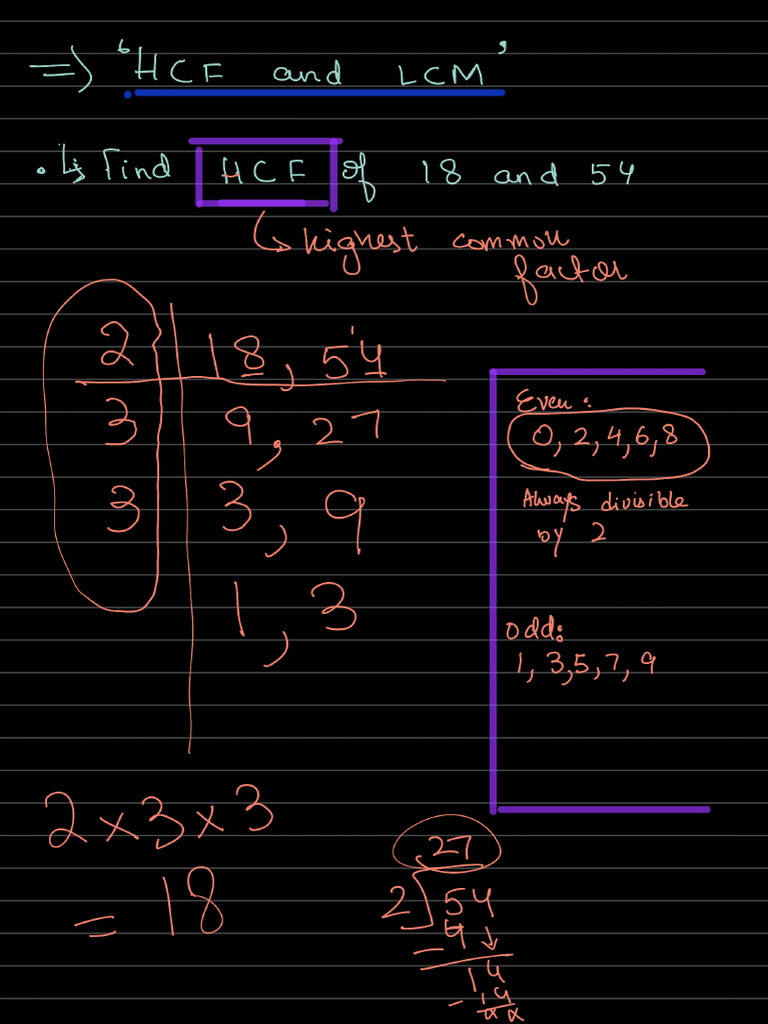 ⇒ 'HCF and LCM'
• ↳ Find HCF of 18 and 54
↳ highest common
factor
2 | 18, 54
3 | 9, 27
3 | 3, 9
1, 3
2 × 3 × 3
= 18
Even:
0, 2, 4, 6, 8
Always divisible
by 2
odd:
1, 3, 5, 7, 9
27
2)54
- 4 ↓
14
- 14
x x